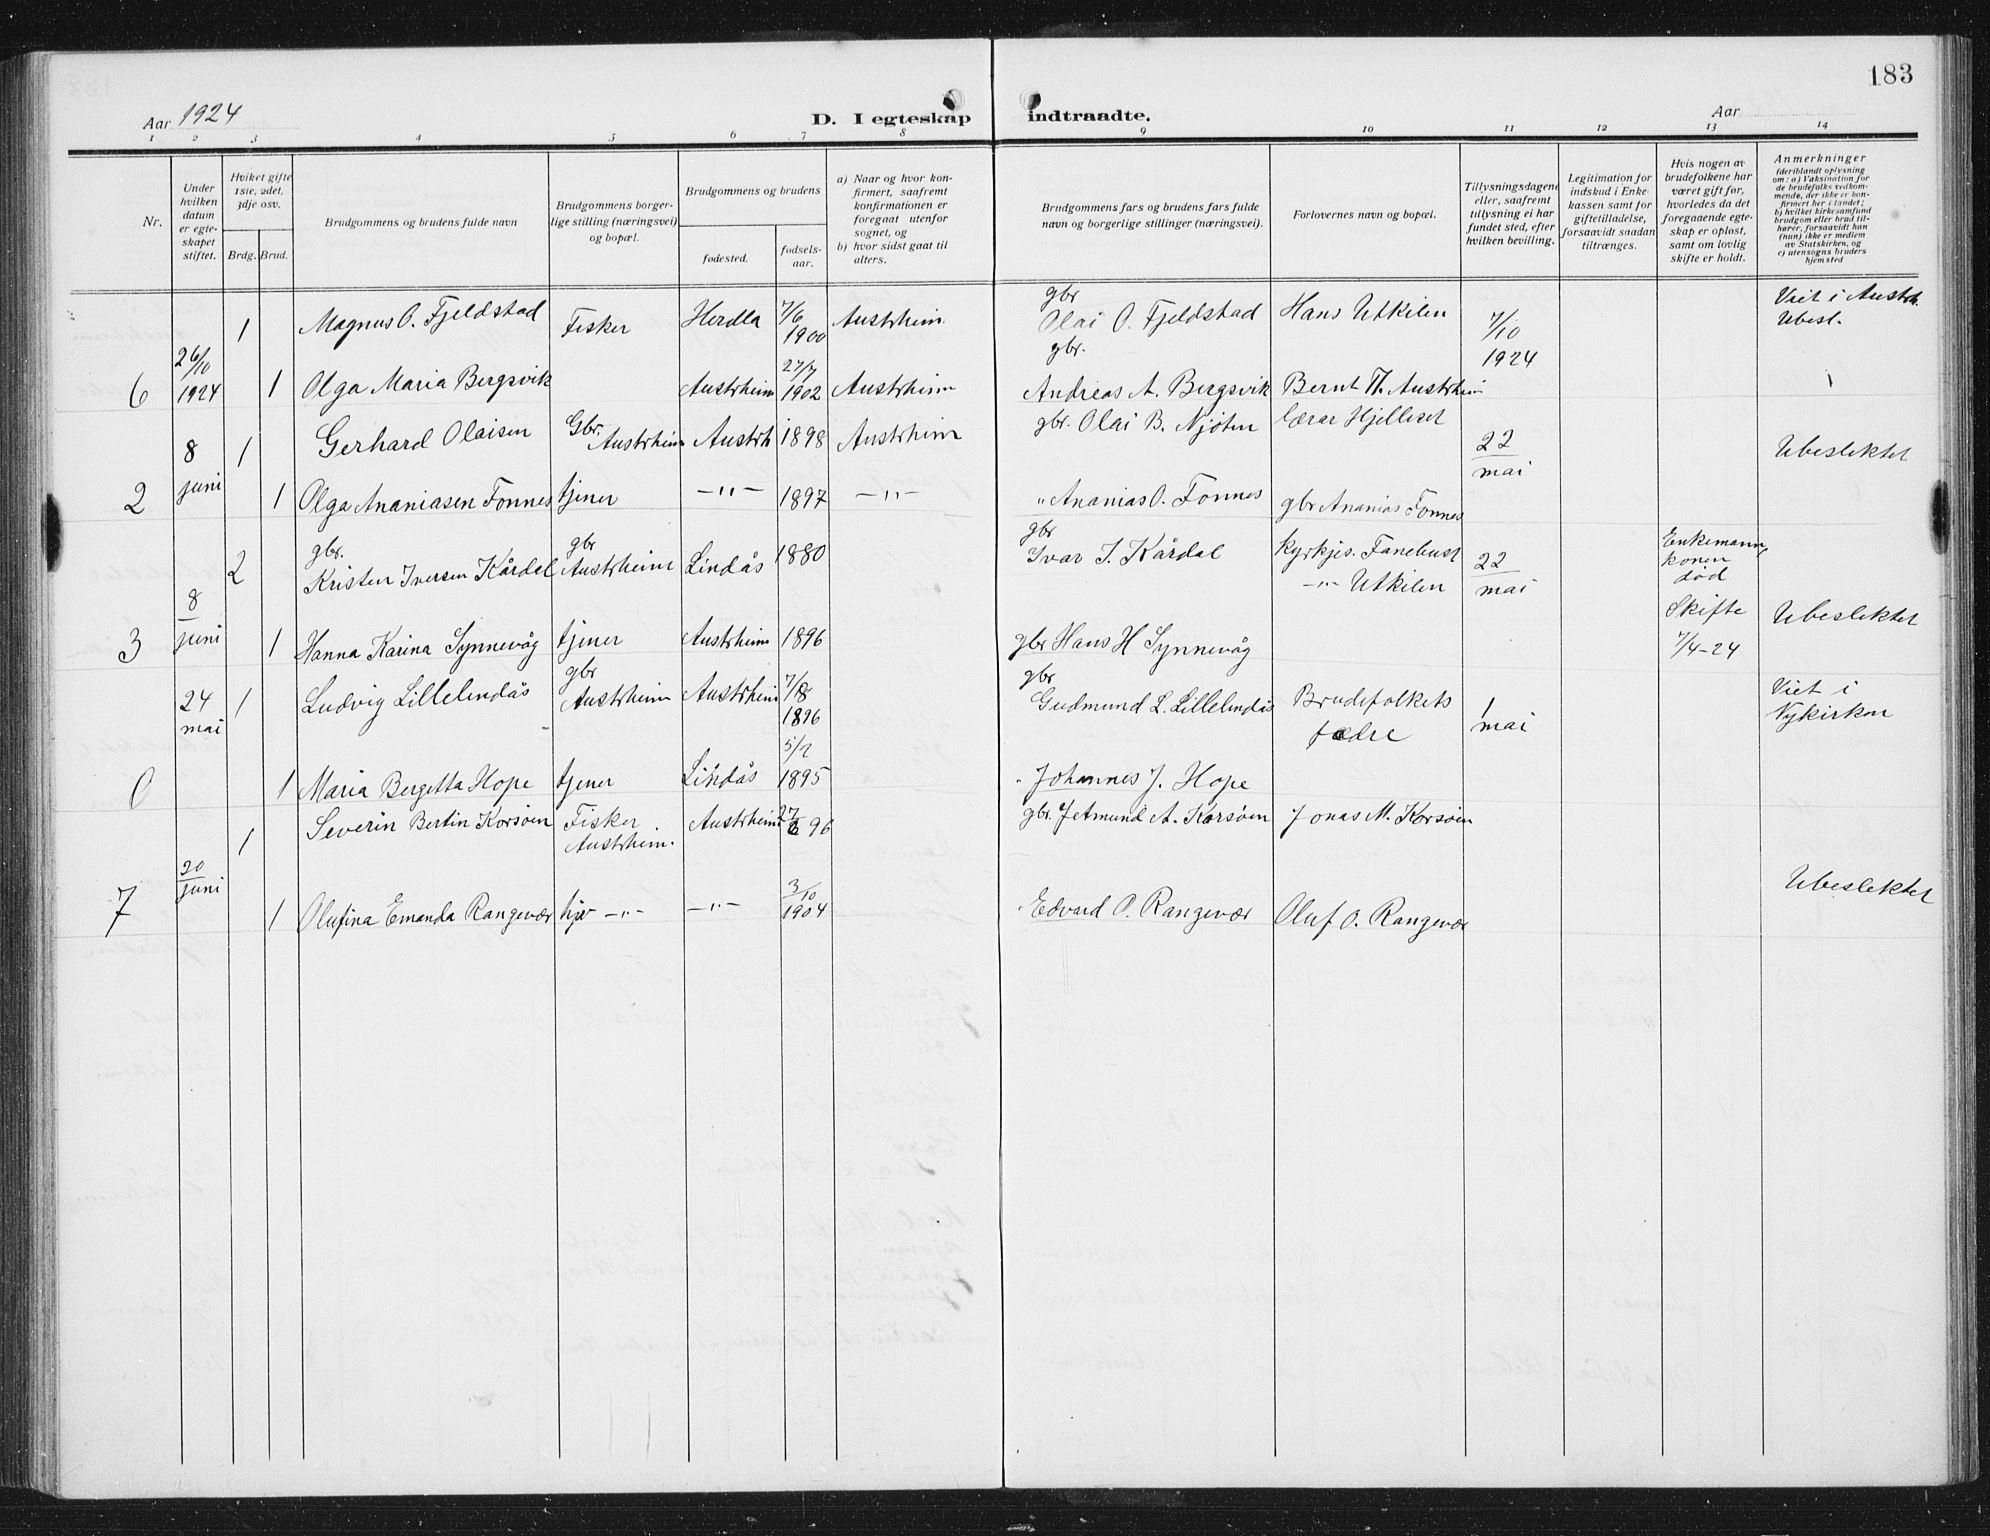 183
Aar 1924
D. I egteskap indtraadte.
Aar
1 2 3 4 5 6 7 8 9 10 11 12 13 14
Nr.
Under hvilken datum er egteskapet stiftet.
Hviket gifte 1ste, 2det, 3dje osv.
Brdg. Brud.
Brudgommens og brudens fulde navn
Brudgommens borgerlige stilling (næringsvei) og bopæl.
Brudgommens og brudens
fødested.
fødselsaar.
a) Naar og hvor konfirmert, saafremt konfirmationen er foregaat utenfor sognet, og
b) hvor sidst gaat til alters.
Brudgommens fars og brudens fars fulde navn og borgerlige stillinger (næringsvei).
Forlovernes navn og bopæl.
Tillysningsdagene eller, saafremt tillysning ei har fundet sted, efter hvilken bevilling.
Legitimation for indskud i Enkekassen samt for giftetilladelse, forsaavidt saadan tiltrænges.
Hvis nogen av brudefolkene har været gift før, hvorledes da det foregaaende egteskap er opløst, samt om lovlig skifte er holdt.
Anmerkninger (deriblandt oplysning om: a) Vaksination for de brudefolks vedkommende, der ikke er konfirmert her i landet; b) hvilket kirkesamfund brudgom eller brud tilhører, forsaavidt han (hun) ikke er medlem av Statskirken, og c) utensogns bruders hjemsted
1 Magnus O. Fjeldstad Fisker Herdla 7/6 1900 Austrheim gbr Olai O. Fjeldstad Hans Utkilen 7/10 1924 Viet i Austrh. Ubesl.
6 26/10 1924 1 Olga Maria Bergsvik Austrheim 27/7 1902 Austrheim gbr. Andreas A. Bergsvik Bernt Th. Austrheim
8 juni 1 Gerhard Olaisen Gbr. Austrheim Austrh 1898 Austrheim gbr. Olai B. Njöten Lærar Hjelleset 22 mai Ubeslektet
2 1 Olga Ananiasen Fonnes tjener —"— 1897 —"— " Ananias O. Fonnes gbr Ananias Fonnes
2 gbr. Kristen Iversen Kårdal gbr Austrheim Lindås 1880 gbr Ivar I. Kårdal Kyrkjes. Fanebust —"— Utkilen 22 mai Enkemann, konen död Skifte 7/4-24 Ubeslektet
3 8 juni 1 Hanna Karina Synnevåg tjener Austrheim 1896 gbr Hans H Synnevåg
24 mai 1 Ludvig Lillelindås gbr Austrheim Austrheim 1896 gbr Gudmund L. Lillelindås Brudefolkets fædre 1 mai Viet i Nykirken
0 1 Maria Bergetta Hope tjener Lindås 1895 Johannes J. Hope
1 Severin Bertin Korsöen Fisker Austrheim. Austrheim 96 gbr. Jetmund A. Korsöen Jonas M. Korsöen
7 juni 1 Olufina Emanda Rangevær hjv —"— —"— 3/10 1904 Edvard O. Rangevær Oluf O. Rangevær Ubeslektet